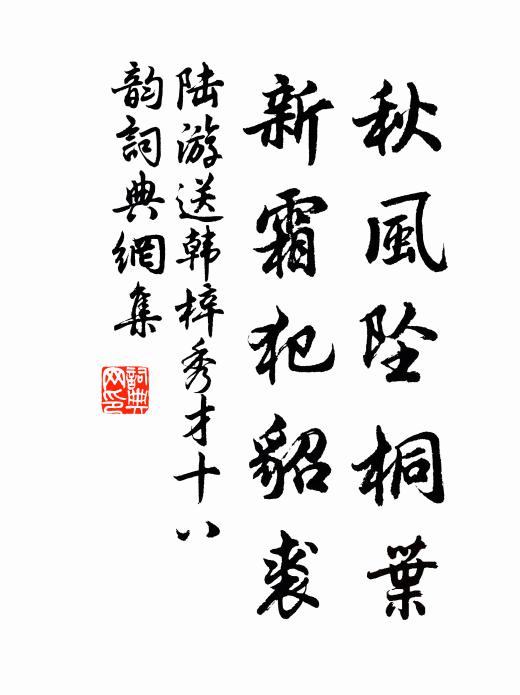 秋風坠桐葉
新霜犯貂裘
陆游送韩梓秀才十八
韵詞典網集
詞典
网印